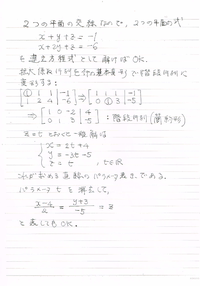 2つの平面の交線なので、2つの平面の式
x+y+z=-1
x+2y+4z=-6
を連立方程式として解けばOK.
拡大係数行列を行の基本変形で階段行列に
変形する:
[① 1 1 | -1] ⇒ [1 1 1 | -1]
[1 2 4 | -6] [0 ① 3 | -5]
⇒ [1 0 -2 | 4] :階段行列(簡約形)
[0 1 3 | -5]
z=t とおくと一般解は
x=2t+4
y=-3t-5
z=t , t∈R
これが求める直線のパラメータ表示である.
パラメータ t を消去して,
x-4/2 = y+5/-3 = z
と表してもOK.